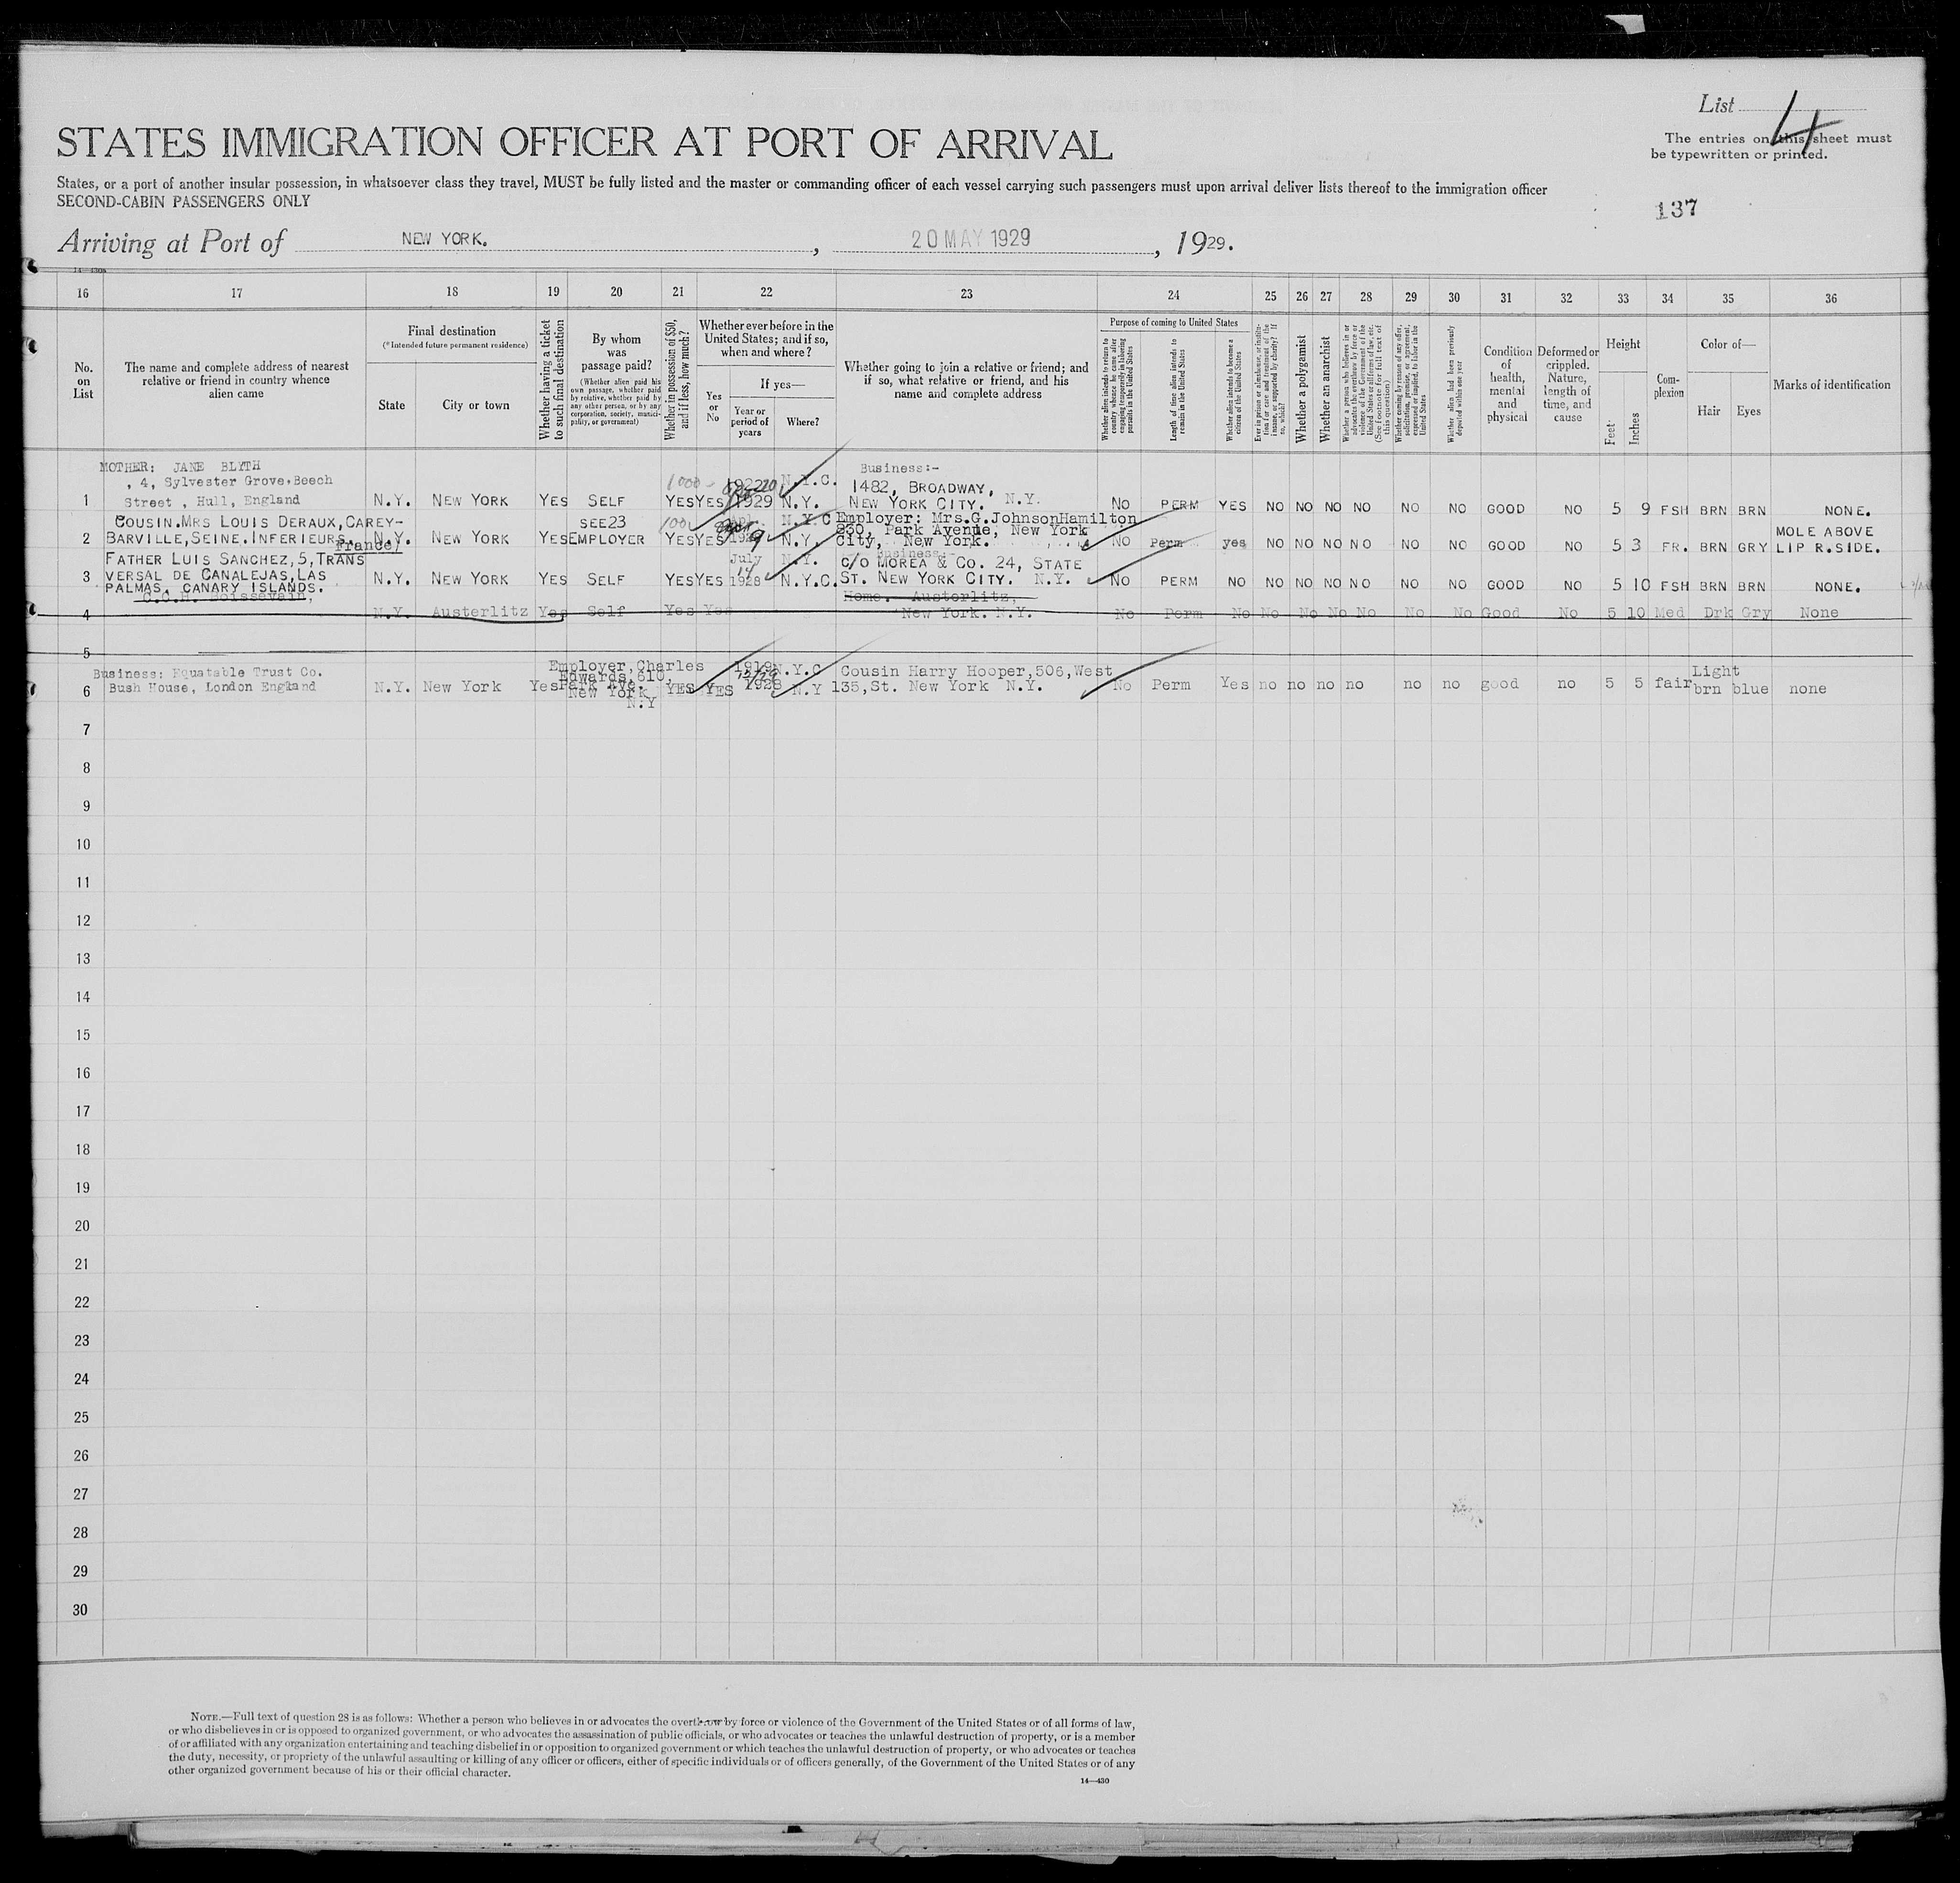 List 4
STATES IMMIGRATION OFFICER AT PORT OF ARRIVAL
The entries on this sheet must
be typewritten or printed.
States, or a port of another insular possession, in whatsoever class they travel, MUST be fully listed and the master or commanding officer of each vessel carrying such passengers must upon arrival deliver lists thereof to the immigration officer
SECOND-CABIN PASSENGERS ONLY
137
Arriving at Port of NEW YORK. , 20 MAY 1929 , 1929.
16 17 18 19 20 21 22 23 24 25 26 27 28 29 30 31 32 33 34 35 36
No. on List
The name and complete address of nearest relative or friend in country whence alien came
Final destination
(*Intended future permanent residence)
State
City or town
Whether having a ticket to such final destination
By whom was passage paid?
(Whether alien paid his own passage, whether paid by relative, whether paid by any other person, or by any corporation, society, municipality, or government)
Whether in possession of $50, and if less, how much?
Whether ever before in the United States; and if so, when and where?
Yes or No
If yes—
Year or period of years
Where?
Whether going to join a relative or friend; and if so, what relative or friend, and his name and complete address
Purpose of coming to United States
Whether alien intends to return to country whence he came after engaging temporarily in laboring pursuits in the United States
Length of time alien intends to remain in the United States
Whether alien intends to become a citizen of the United States
Ever in prison or almshouse, or institution for care and treatment of the insane, or supported by charity? If so, which?
Whether a polygamist
Whether an anarchist
Whether a person who believes in or advocates the overthrow by force or violence of the Government of the United States or all forms of law, etc. (See footnote for full text of this question)
Whether coming by reason of any offer, solicitation, promise, or agreement, expressed or implied, to labor in the United States
Whether alien had been previously deported within one year
Condition of health, mental and physical
Deformed or crippled. Nature, length of time, and cause
Height
Feet
Inches
Complexion
Color of—
Hair
Eyes
Marks of identification
MOTHER: JANE BLYTH
, 4, Sylvester Grove, Beech
1 Street , Hull, England N.Y. NEW YORK YES SELF 1000 YES YES 1929 N.Y.C. N.Y. Business:- 1482, BROADWAY, NEW YORK CITY. N.Y. NO PERM YES NO NO NO NO NO NO GOOD NO 5 9 FSH BRN BRN NONE.
COUSIN.MRS LOUIS DERAUX,CAREY-
2 BARVILLE,SEINE.INFERIEURS. France/ N.Y. NEW YORK YES SEE23 EMPLOYER 100 YES YES N.Y.C N.Y. Employer: Mrs.G.JohnsonHamilton 830, Park Avenue, New York City, New York. NO Perm yes NO NO NO NO NO NO GOOD NO 5 3 FR. BRN GRY MOLE ABOVE LIP R.SIDE.
FATHER LUIS SANCHEZ,5,TRANS
3 VERSAL DE CANALEJAS,LAS
PALMAS. CANARY ISLANDS. N.Y. NEW YORK YES SELF YES YES July 1928 N.Y. N.Y.C. Business:- C/O MOREA & CO. 24, STATE ST. NEW YORK CITY. N.Y. NO PERM NO NO NO NO NO NO NO GOOD NO 5 10 FSH BRN BRN NONE.
C.C.H. Boissevain,
4 N.Y. Austerlitz Yes Self Yes Yes Home. Austerlitz, New York. N.Y. No Perm No No No No No No No Good No 5 10 Med Drk Gry None
5
Business: Equatable Trust Co.
6 Bush House, London England N.Y. New York Yes Employer,Charles Edwards,610, Park Ave. New York N.Y YES YES 1919 1928 N.Y.C N.Y Cousin Harry Hooper,506,West 135,St. New York N.Y. No Perm Yes no no no no no no good no 5 5 fair Light brn blue none
7
8
9
10
11
12
13
14
15
16
17
18
19
20
21
22
23
24
25
26
27
28
29
30
NOTE.—Full text of question 28 is as follows: Whether a person who believes in or advocates the overthrow by force or violence of the Government of the United States or of all forms of law,
or who disbelieves in or is opposed to organized government, or who advocates the assassination of public officials, or who advocates or teaches the unlawful destruction of property, or is a member
of or affiliated with any organization entertaining and teaching disbelief in or opposition to organized government or which teaches the unlawful destruction of property, or who advocates or teaches
the duty, necessity, or propriety of the unlawful assaulting or killing of any officer or officers, either of specific individuals or of officers generally, of the Government of the United States or of any
other organized government because of his or their official character.
14—430